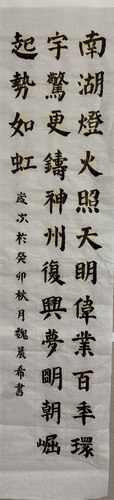 南湖燈火照天明偉業百年環
宇驚更鑄神州復興夢明朝崛
起勢如虹
歲次於癸卯秋月魏晨希書